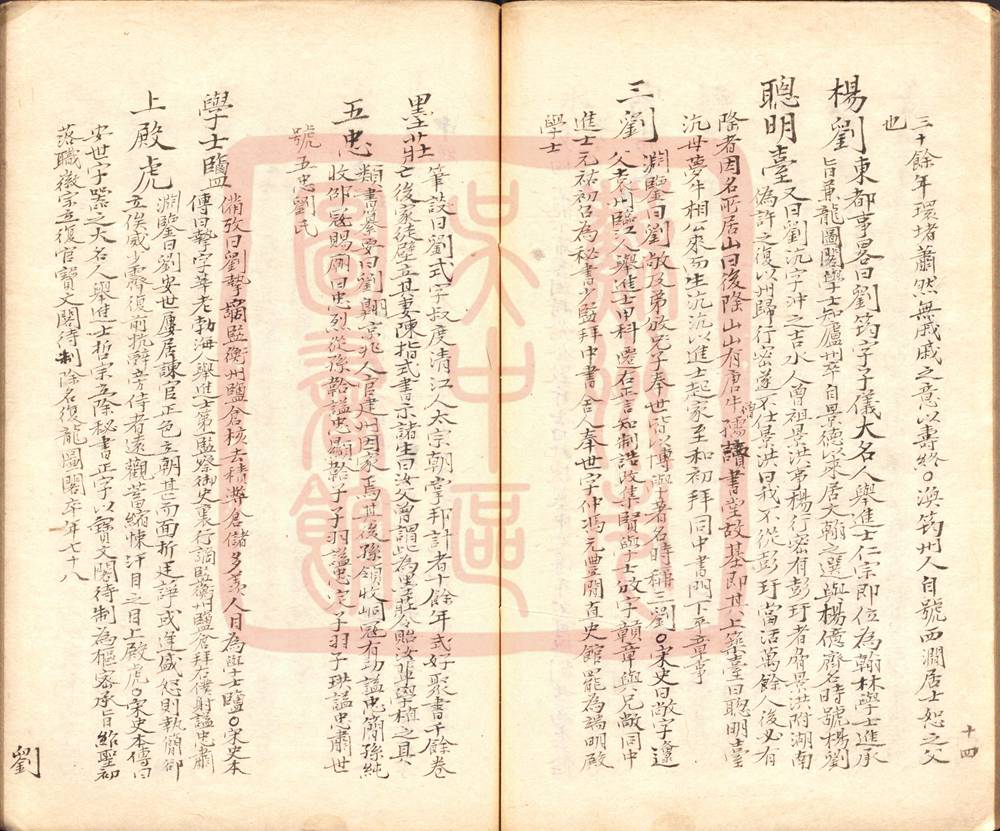 三十餘年環堵蕭然無戚戚之意以壽終○渙筠州人自號西澗居士恕之父
也
楊劉 東都事畧曰劉筠字子儀大名人舉進士仁宗即位為翰林學士進承
旨兼龍圖閣學士知廬州卒自景德以來居文翰之選與楊億齊名時號楊劉
聰明臺 又曰劉沆字沖之吉水人曾祖景洪始楊行密有彭玕者脅景洪附湖南
偽許之復以州歸行密遂不仕景洪曰我不從彭玕當活萬餘人後必有
隆者因名所居山曰後隆山山有唐牛僧孺讀書堂故基即其上築臺曰聰明臺
沆母夢牛相公來而生沆沆以進士起家至和初拜同中書門下平章事
三劉 淵鑒曰劉敞及弟攽兄子奉世皆以博學著名時稱三劉○宋史曰敞字邍
父袁州臨江人舉進士甲科遷右正言知制誥改集賢學士攽字贛章與兄敞同中
進士元祐初召為秘書少監拜中書舍人奉世字仲馮元豐間直史館罷為端明殿
學士
十四
墨莊 筆談曰劉式字叔度清江人太宗朝掌邦計者十餘年式好聚書千餘卷
亡後家徒壁立其妻陳指式書示諸生曰汝父嘗謂此為墨莊今貽汝輩學植之具
五忠 類書纂要曰劉翺京兆人官建州因家焉其後孫領收峒冦有功謚忠簡孫純
收邵冦賜廟曰忠烈從孫韐謚忠顯韐子子羽謚忠定子羽子珙謚忠肅世
號五忠劉氏
學士鹽 俏攷曰劉摯謫監衡州鹽倉核去積弊倉儲多羨人目為學士鹽○宋史本
傳曰摯字莘老勃海人舉進士第一監察御史裏行謫監衡州鹽倉拜右僕射謚忠肅
上殿虎 淵鑒曰劉安世屢居諫官正色立朝其面折廷諍或逢盛怒則執簡卻
立俟威少霽復前抗辭旁侍者遠觀蓄縮悚汗目之目上殿虎○宋史本傳曰
安世字器之大名人舉進士哲宗立除秘書正字以寶文閣待制為樞密承旨紹聖初
落職徽宗立復官寶文閣待制除名復龍圖閣卒年七十八
劉